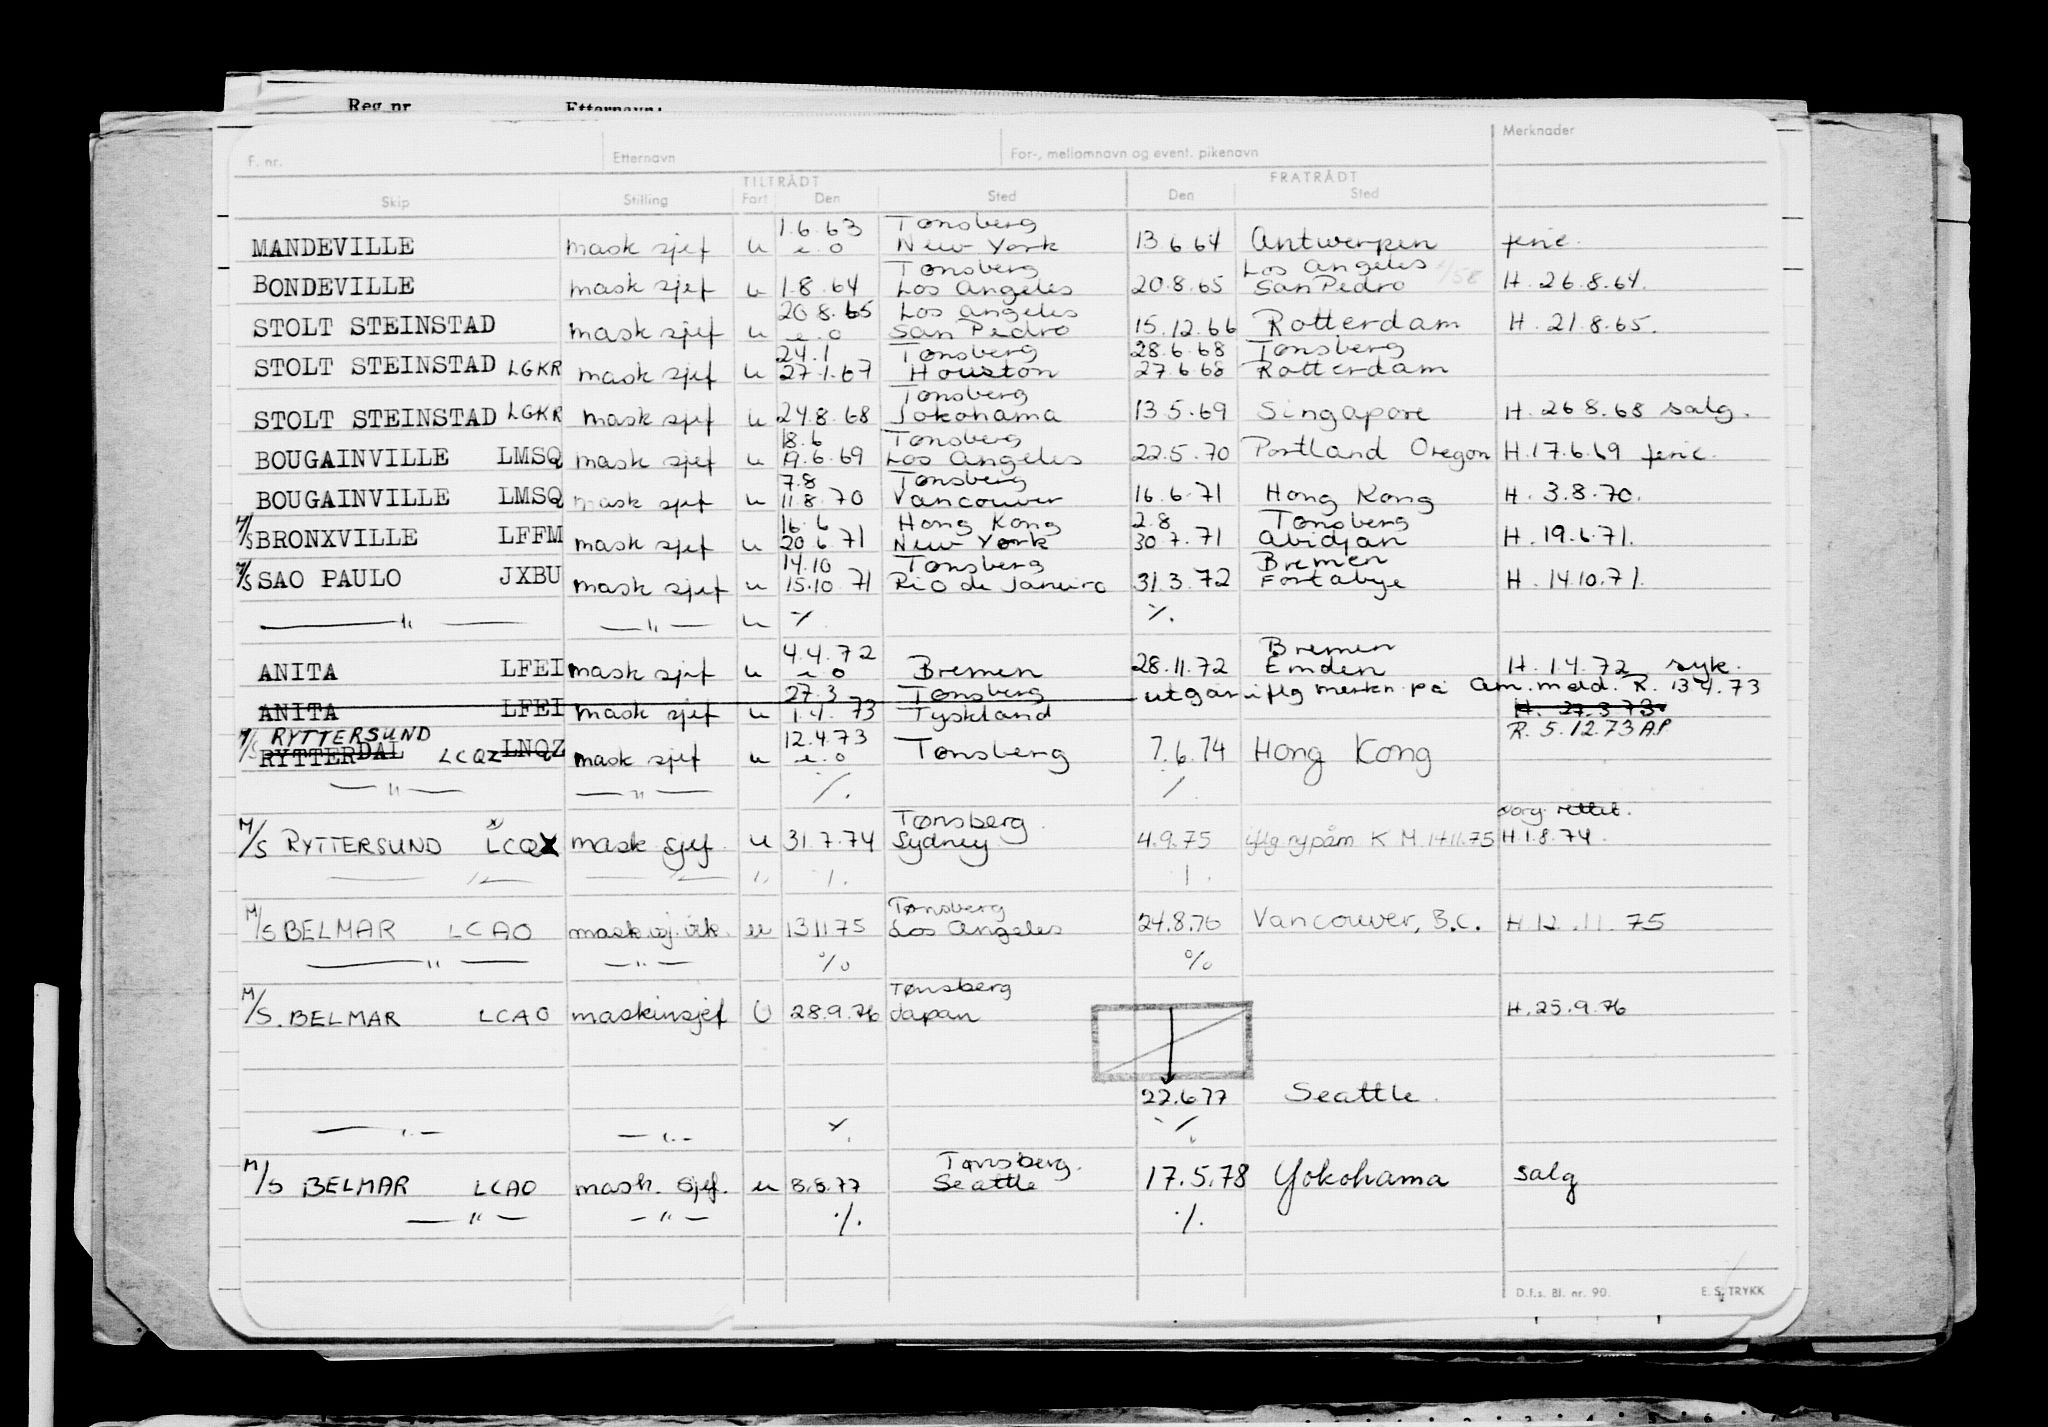 Reg. nr. Etternavn:
F. nr. Etternavn For-, mellomnavn og event. pikenavn Merknader
TILTRÅDT FRATRÅDT
Skip Stilling Fart Den Sted Den Sted
1.6.63 Tønsberg
MANDEVILLE mask sjef u e.o New York 13.6.64 Antwerpen ferie.
Tønsberg Los Angeles
BONDEVILLE mask sjef u 1.8.64 Los Angeles 20.8.65 San Pedro H. 26.8.64.
20.8.65 Los Angeles
STOLT STEINSTAD mask sjef u e.o San Pedro 15.12.66 Rotterdam H. 21.8.65.
24.1 Tønsberg 28.6.68 Tønsberg
STOLT STEINSTAD LGKR mask sjef u 27.1.67 Houston 27.6.68 Rotterdam
Tønsberg
STOLT STEINSTAD LGKR mask sjef u 24.8.68 Jokohama 13.5.69 Singapore H. 26 8.68 salg.
18.6 Tønsberg
BOUGAINVILLE LMSQ mask sjef u 19.6.69 Los Angeles 22.5.70 Portland Oregon H.17.6.69 ferie.
7.8 Tønsberg
BOUGAINVILLE LMSQ mask sjef u 11.8.70 Vancouver 16.6.71 Hong Kong H. 3.8.70.
16.6 Hong Kong 2.8 Tønsberg
M/S BRONXVILLE LFFM mask sjef u 20.6.71 New York 30.7.71 Abidjan H. 19.6.71.
14.10 Tønsberg Bremen
M/S SAO PAULO JXBU mask sjef u 15.10.71 Rio de Janeiro 31.3.72 Fortabye H. 14.10.71.
— " — — " — u % %.
4.4.72 Bremen
ANITA LFEI mask sjef u e o Bremen 28.11.72 Emden H. 1.4.72 syk.
27.3 Tønsberg utgår iflg merkn. på Am. meld. R. 13.4.73
ANITA LFEI mask sjef u 1.4.73 Tyskland H. 27.3.73
M/S RYTTERSUND 12.4.73 R. 5.12.73 AP.
RYTTERDAL LCQZ LNQZ mask sjef u e.o Tønsberg 7.6.74 Hong Kong
— " — — " — %. %
Tønsberg. rettet.
M/S RYTTERSUND LCQX mask sjef. u 31.7.74 Sydney 4.9.75 iflg K M 14.11.75 H.1.8.74.
— " — — " — " %. %.
Tønsberg
M/S BELMAR LCAO u 13.11.75 Los Angeles 24.8.76 Vancouver, B.C. H.12.11.75
— " — — " — % %
Tønsberg
M/S. BELMAR LCAO maskinsjef U 28.9.76 Japan H.25.9.76
22.6.77 Seattle.
— " — — " — %. %.
Tønsberg.
M/S BELMAR LCAO mask. sjef. u 8.8.77 Seattle 17.5.78 Yokohama salg
— " — — " — %. %.
D.f.s. Bl. nr. 90. E. S. TRYKK